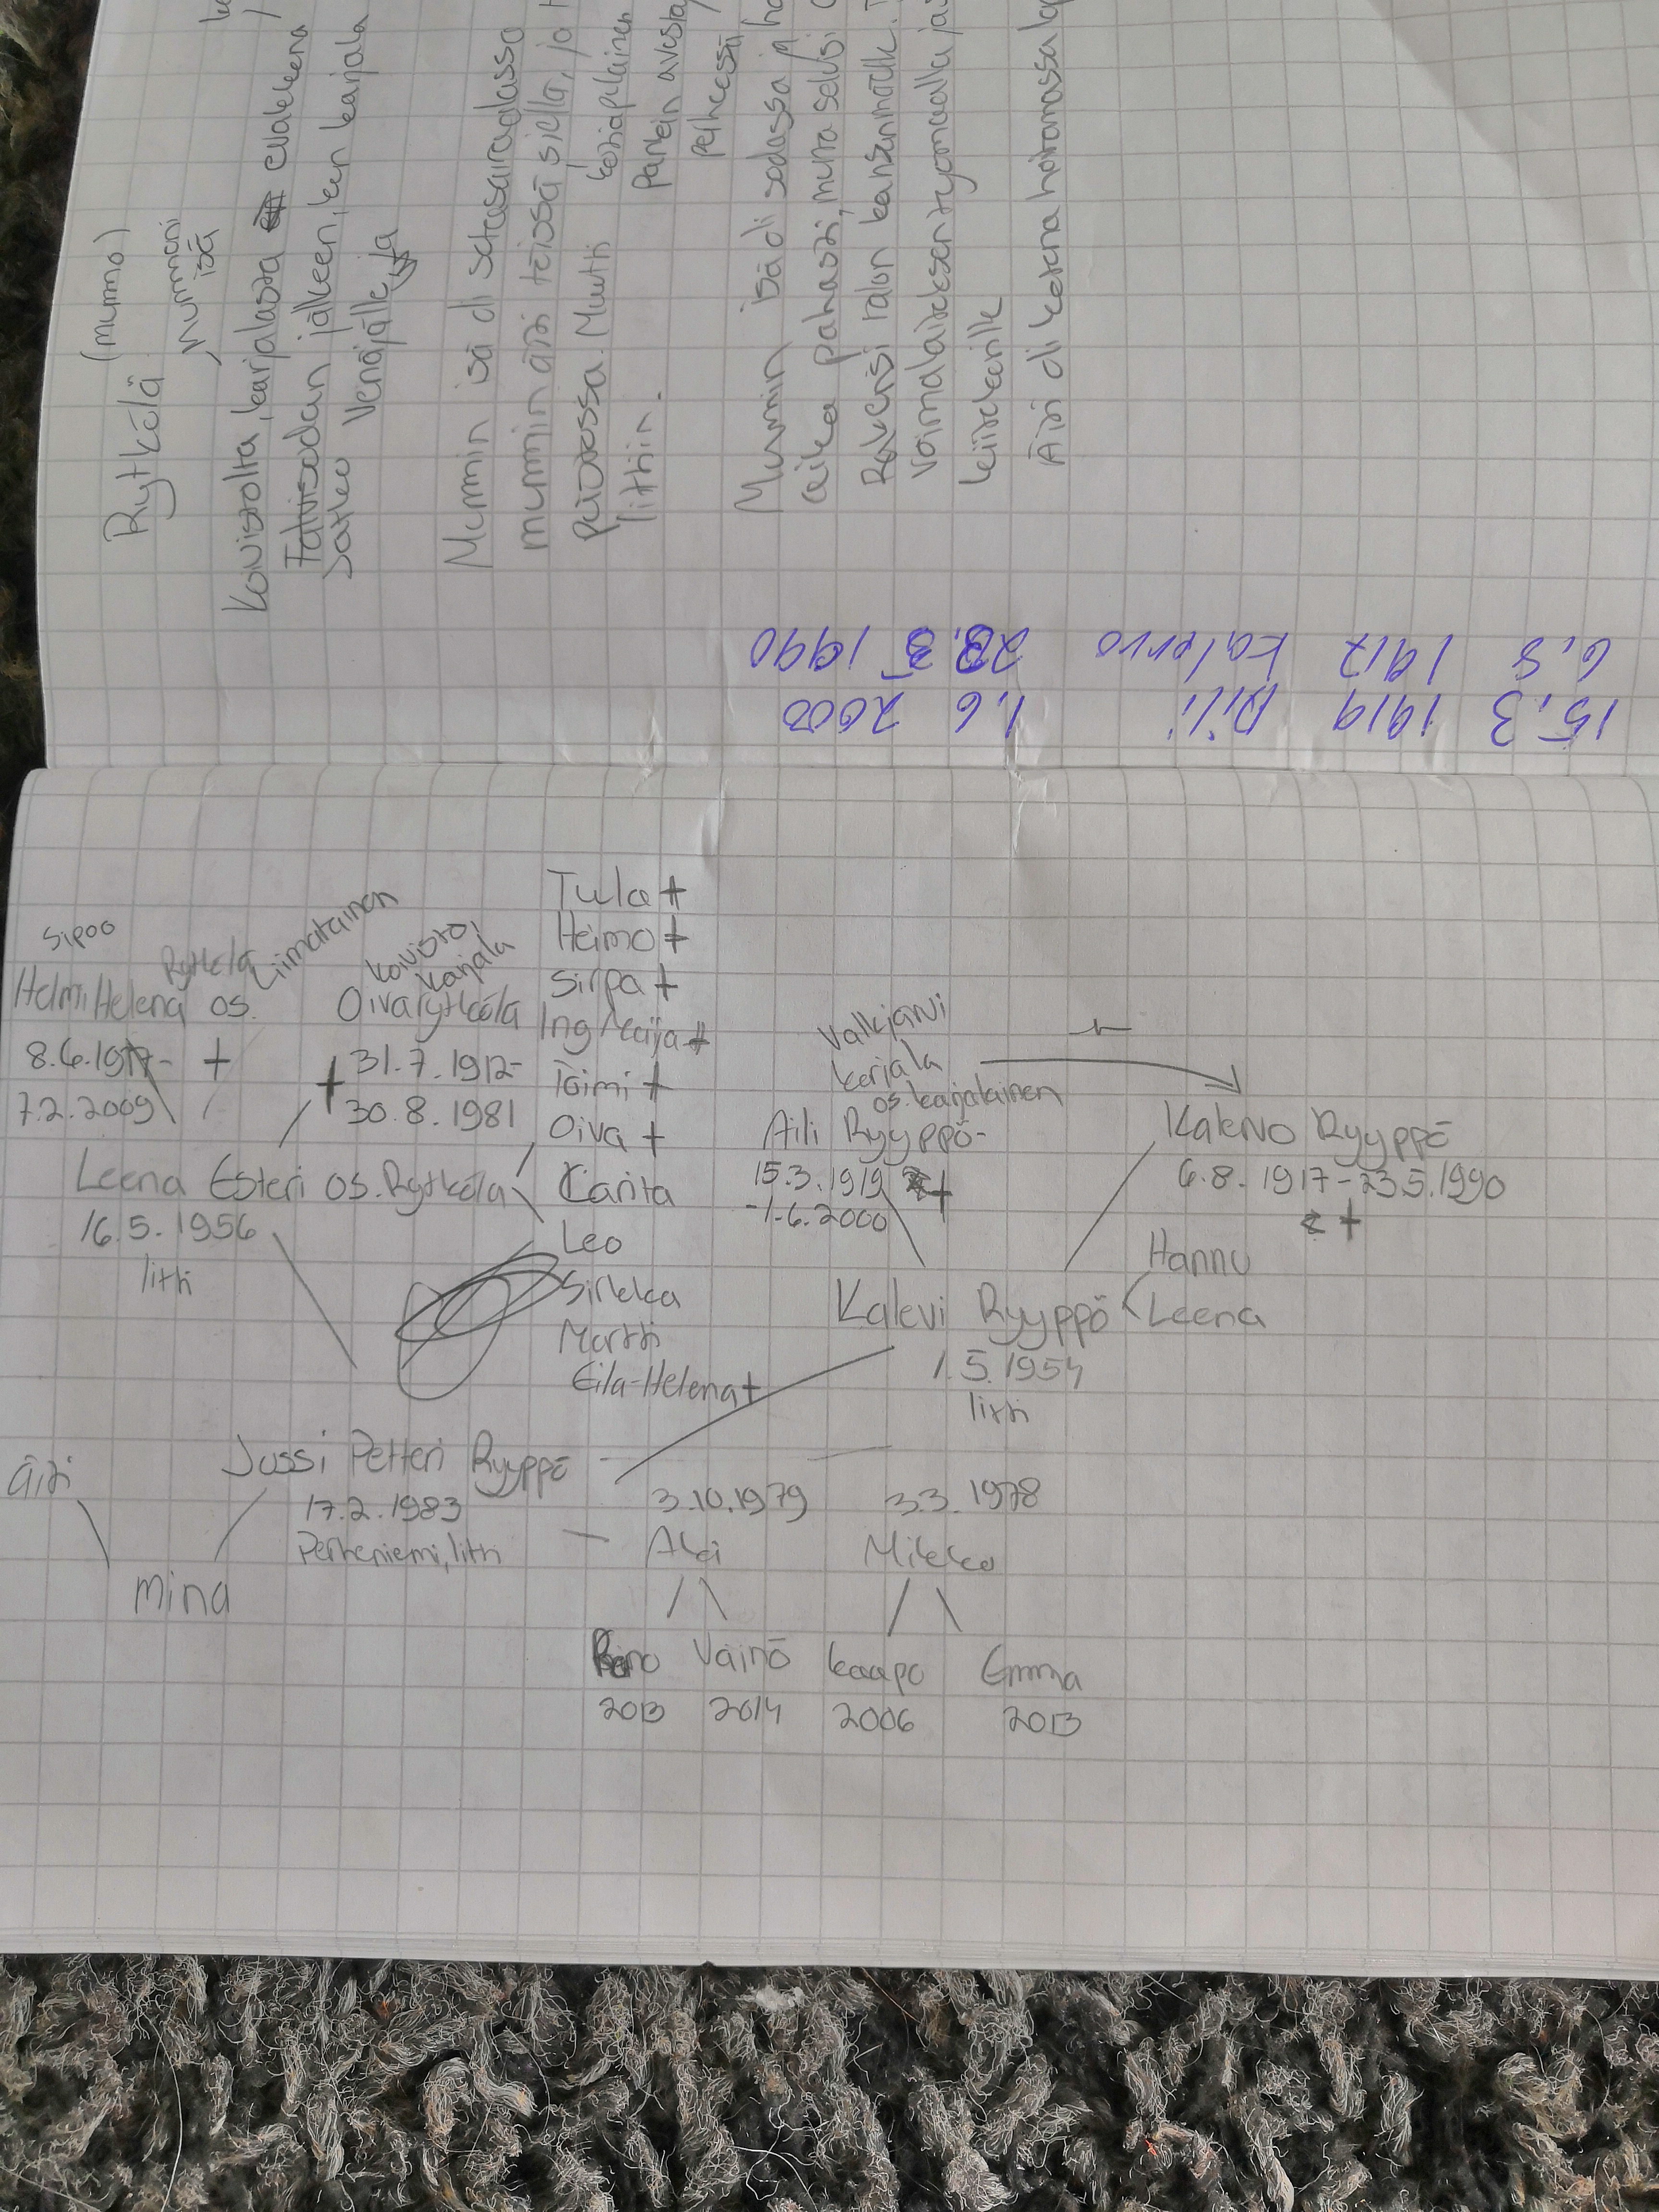 Rytkölä (mummo)
mummoni
isä
Koivistolta, karjalasta evakkeena
Talvisodan jälkeen, kun karjala
Venäjälle
Mummin isä oli sotasairaalassa
mummin äiti töissä siellä, jo
puvossa. Muutti
Iittiin.
parien
perheessä
Mummin isä oli sodassa
aika pahasti, mutta selvisi
Rakensi talon kansanmäelle.
Voimalaitoksen työmaalla
Äiti oli kotona hoitamassa
6.8 1917 Kalervo 23.5 1990
15.3 1919 Aili 1.6 2000
Sipoo
Rytkölä
Liimatainen
Helmi Helena os.
8.6.1917- +
7.2.2009
Koivisto,
Karjala
Oiva rytkölä
+ 31.7.1912-
30.8.1981
Tula +
Heimo +
Sirpa +
Ing Maija +
Toimi +
Oiva +
Carita
Leo
Sirkka
Martti
Eila-Helena +
Leena Esteri os. Rytkölä
16.5.1956
Iitti
Valkjärvi
karjala
os. karjalainen
Aili Ryyppö-
15.3.1919 +
-1.6.2000
Kalervo Ryyppö
6.8.1917-23.5.1990
+
Hannu
Kalevi Ryyppö Leena
1.5.1954
Iitti
äiti
Jussi Petteri Ryyppö
17.2.1983
Perheniemi, Iitti
minä
3.10.1979 3.3.1978
Aki Mikko
Väinö Kaapo Emma
2013 2014 2006 2013